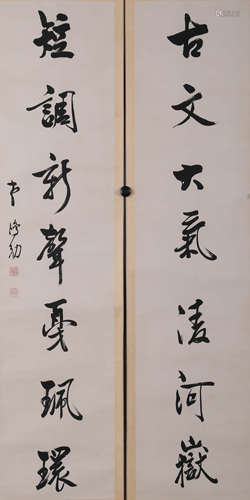 古文大氣凌河嶽
短調新聲戛珮環